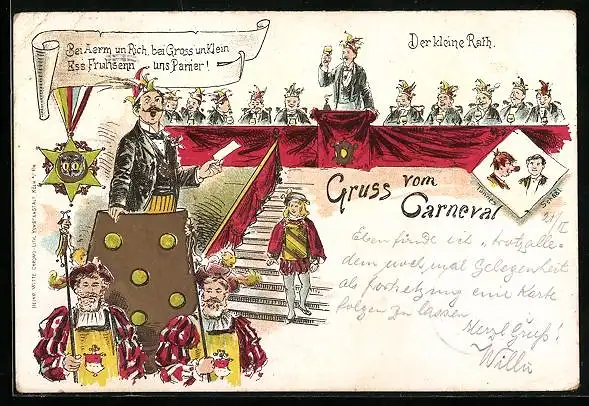 Bei Aerm un Rich, bei Gross un Klein
Ess Fruhsenn uns Panier!
Der kleine Rath.
Gruss vom
Carneval
Tünnes
21/II
Eben finde ich „trotzalle-
dem noch mal Gelegenheit
als Fortsetzung eine Karte
folgen zu lassen
Herzl Gruß!
Willi
HEINR. WITTE, CHROMO-LITH. KUNSTANSTALT, KÖLN a/Rh.